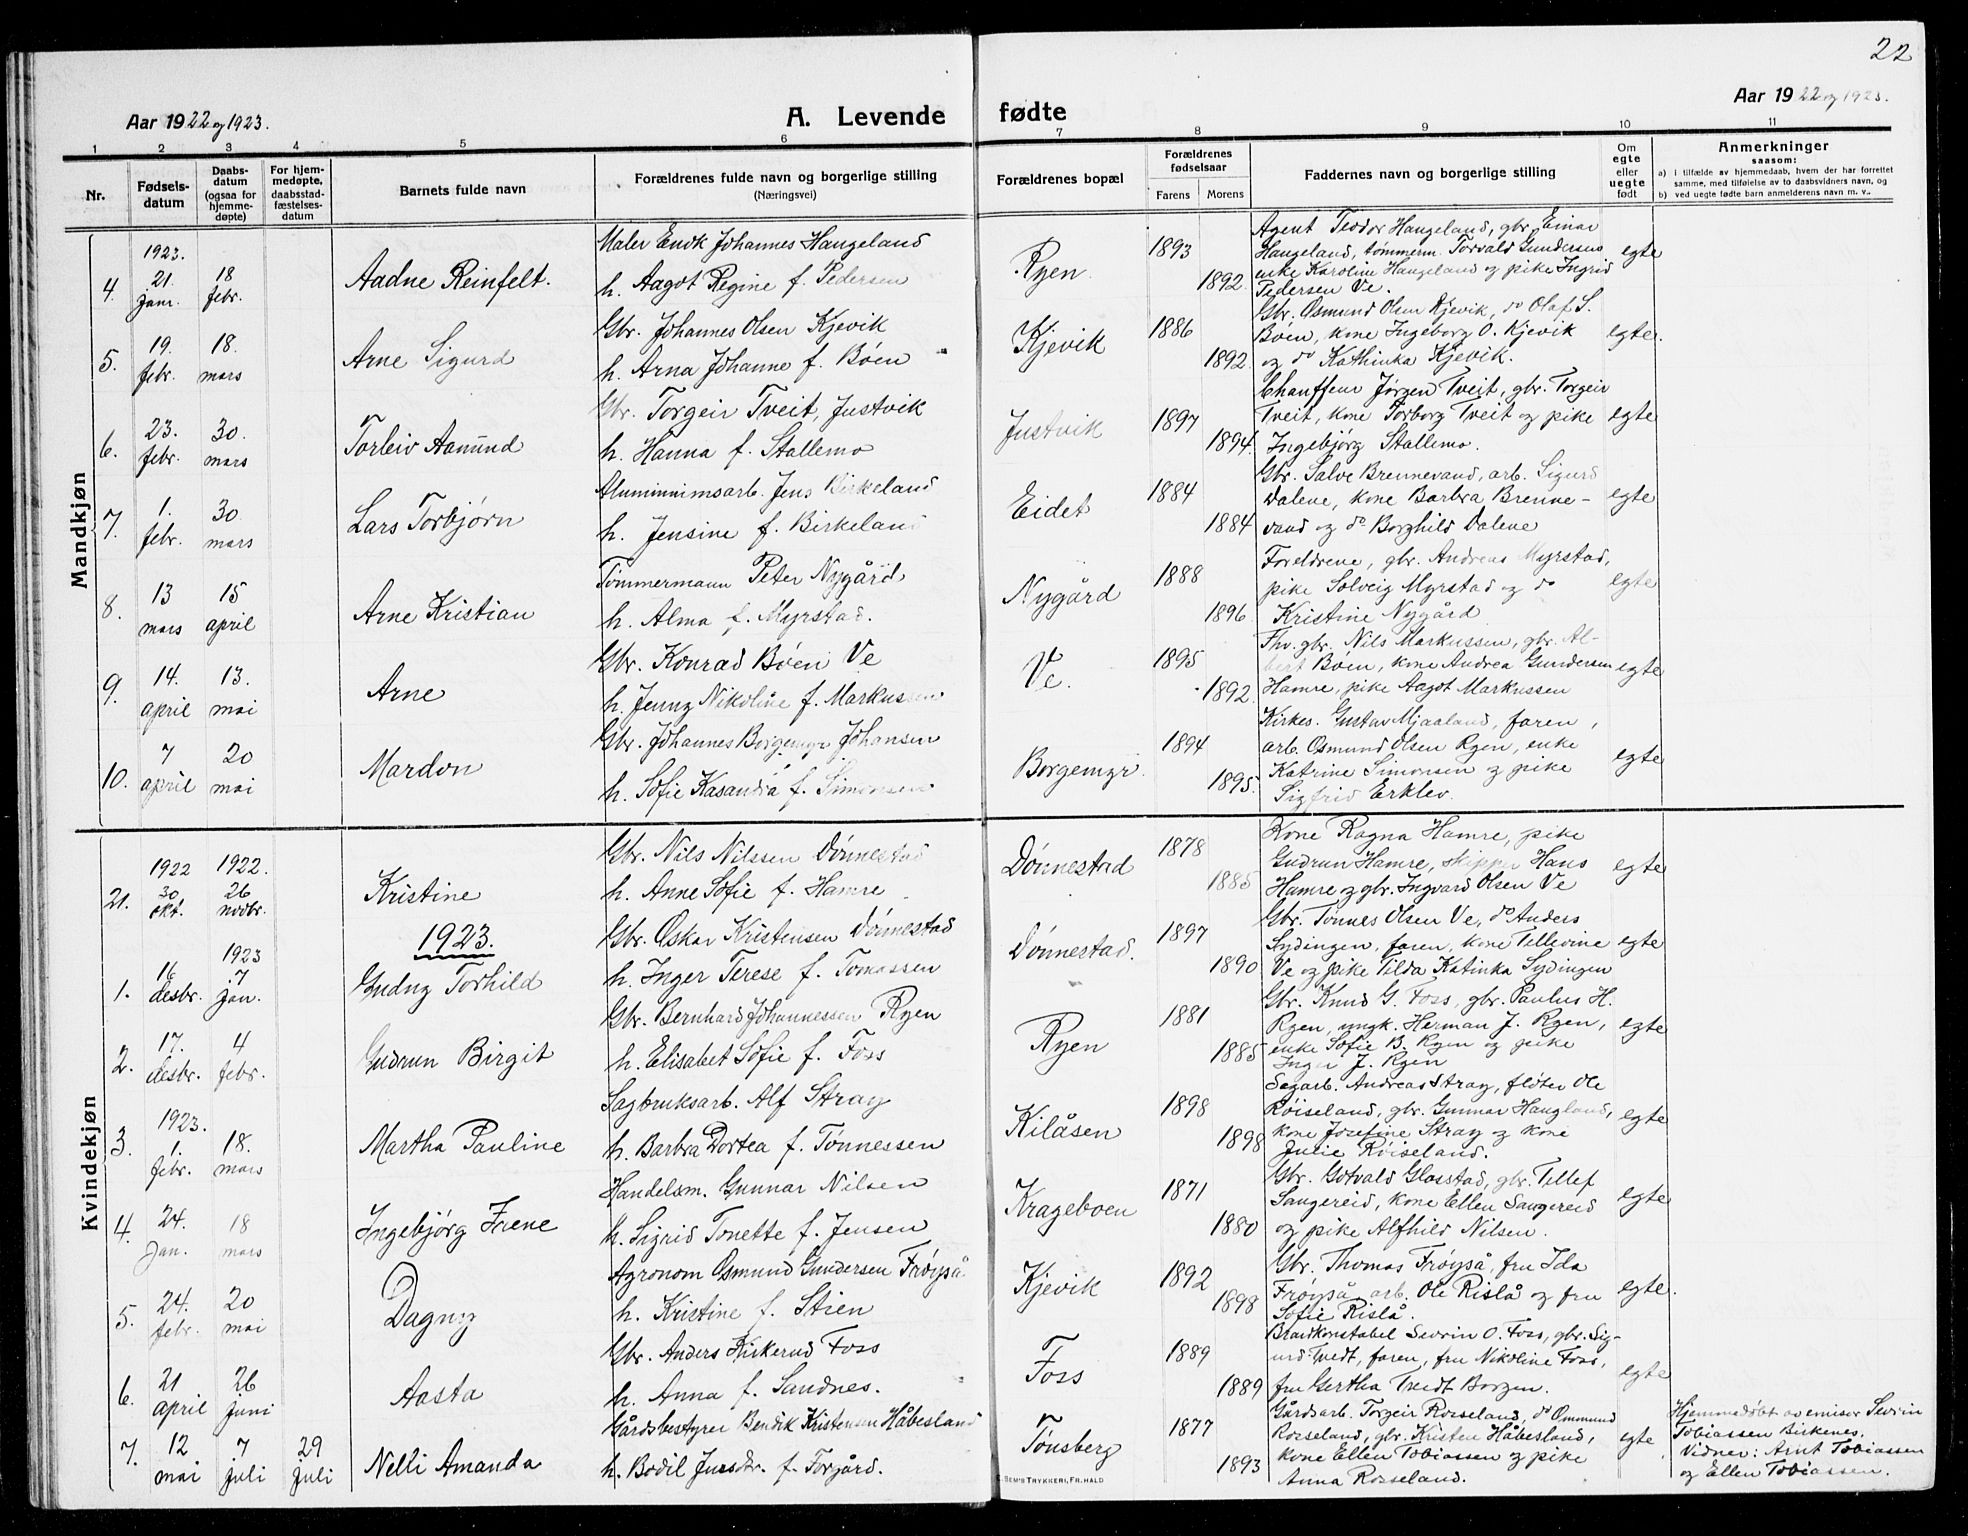 22
Aar 1922 og 1923.
A. Levende fødte
Aar 1922 og 1923.
1 2 3 4 5 6 7 8 9 10 11
Nr. Fødselsdatum Daabsdatum (ogsaa for hjemmedøpte) For hjemmedøpte, daabsstadfæstelsesdatum Barnets fulde navn Forældrenes fulde navn og borgerlige stilling (Næringsvei) Forældrenes bopæl Forældrenes fødselsaar Farens Morens Faddernes navn og borgerlige stilling Om egte eller uegte født Anmerkninger saasom: a) i tilfælde av hjemmedaab, hvem der har forrettet samme, med tilføielse av to daabsvidners navn, og b) ved uegte fødte barn anmelderens navn m. v..
Mandkjøn
4. 1923. 21. janr. 18 febr. Aadne Reinfelt.
Maler Enok Johannes Haugeland
h. Aagot Regine f. Pedersen
Ryen 1893 1892
Agent Teodor Haugeland, gbr. Einar
Haugeland, tømmerm. Torvald Gundersen
enke Karoline Haugeland og pike Ingrid
Pedersen Ve.
egte
5. 19. febr. 18. mars Arne Sigurd
Gbr. Johannes Olsen Kjevik
h. Arna Johanne f. Bøen
Kjevik 1886 1892
Gbr. Osmund Olsen Kjevik, do Olaf S.
Bøen, kone Ingeborg O. Kjevik
og do Kathinka Kjevik.
egte.
6. 23. febr. 30. mars Torleiv Aamund
Gbr. Torgeir Tveit, Justvik
h. Hanna f. Stallemo
Justvik 1897 1894.
Chauffeur Jørgen Tveit, gbr. Torgeir
Tveit, kone Torborg Tveit og pike
Ingebjørg Stallemo.
egte
7. 1. febr. 30 mars Lars Torbjørn
Aluminiumsarb. Jens Birkeland
h. Jensine f. Birkeland
Eidet 1884 1884
Gbr. Salve Brennevand, arb. Sigurd
Dalene, kone Barbra Brenne-
vand og do Borghild Dalene
egte
8. 13 mars 15 april Arne Kristian
Tømmermann Peter Nygård
h. Alma f. Myrstad.
Nygård 1888 1896
Foreldrene, gbr. Andreas Myrstad,
pike Solveig Myrstad og do
Kristine Nygård
egte
9. 14. april 13. mai Arne
Gbr. Konrad Bøen Ve
h. Jenny Nikoline f. Markussen
Ve. 1895 1892
Fhv. gbr. Nils Markussen, gbr. Al-
bert Bøen, kone Andrea Gundersen
Hamre, pike Aagot Markussen
egte
10. 7 april 20 mai Mardon
Gbr. Johannes Borgemyr Johansen
h. Sofie Kasandra f. Simonsen
Borgemyr. 1894 1895.
Kirkes. Gustav Mjaaland, faren,
arb. Osmund Olsen Ryen, enke
Katrine Simonsen og pike
Sigfrid Erklev.
egte
Kvindekjøn
21. 1922 30 okt. 1922. 26 novbr. Kristine
Gbr. Nils Nilssen Dønnestad
h. Anne Sofie f. Hamre
Dønnestad 1878 1885
Kone Ragna Hamre, pike
Gudrun Hamre, skipper Hans
Hamre og gbr. Ingvard Olsen Ve
egte
1923.
1. 16 desbr. 1923 7 jan. Gudny Torhild
Gbr. Oskar Kristensen Dønnestad
h. Inger Terese f. Tomassen
Dønnestad. 1897 1890
Gbr. Tønnes Olsen Ve, do Anders
Sydingen, faren, kone Tellevine
Ve og pike Tilda Katinka Sydingen
egte
2. 17. desbr. 4 febr. Gudrun Birgit
Gbr. Bernhard Johannessen Ryen
h. Elisabet Sofie f. Foss
Ryen 1881 1885
Gbr. Knud G. Foss, gbr. Paulus H.
Ryen, ungk. Herman J. Ryen,
enke Sofie B. Ryen og pike
Inger J. Ryen
egte
3. 1923. 1. febr. 18. mars Martha Pauline
Sagbruksarb. Alf Stray
h. Barbra Dortea f. Tønnessen
Kilåsen 1898 1898
Sagarb. Andreas Stray, fløter Ole
Røiseland, gbr. Gunnar Haugland,
kone Josefine Stray og kone
Julie Røiseland.
egte
4. 24. jan. 18 mars Ingebjørg Irene
Handelsm. Gunnar Nilsen
h. Sigrid Tonette f. Jensen
Krageboen 1871 1880
Gbr. Gotvald Glasstad, gbr. Tellef
Sangereid, kone Ellen Sangereid
og pike Alfhild Nilsen.
egte
5. 24. febr. 20 mai Dagny
Agronom Osmund Gundersen Frøyså
h. Kristine f. Stien
Kjevik 1892 1898
Gbr. Thomas Frøyså, fru Ida
Frøyså, arb. Ole Rislå og fru
Sofie Rislå.
egte.
6. 21 april 26 juni Aasta
Gbr. Anders Kirkerud Foss
h. Anna f. Sandnes.
Foss 1889 1889
Brandkonstabel Sevrin O. Foss, gbr. Sig-
urd Tvedt, faren, fru Nikoline Foss,
fru Gertha Tvedt Borgen.
egte
7. 12 mai 7 juli 29 juli Nelli Amanda
Gårdsbestyrer Bendik Kristensen Håbesland
h. Bodil Jursdr. f. Torgård.
Tønsberg 1877 1893
Gårdsarb. Torgeir Rosseland, do Ommund
Rosseland, gbr. Kristen Håbesland,
kone Ellen Tobiassen og pike
Anna Rosseland.
egte
Hjemmedøbt av emisær Sevrin
Tobiassen Birkenes.
Vidner: Arnt Tobiassen
og Ellen Tobiassen.
C. SEM'S TRYKKERI, FR.HALD